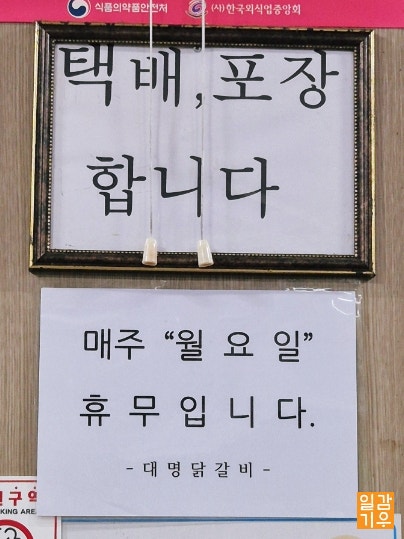 식품의약품안전처 (사)한국외식업중앙회
택배, 포장
합니다
매주 “월 요 일”
휴 무 입 니 다.
- 대 명 닭 갈 비 -
연구역
KING AREA
일감
기우